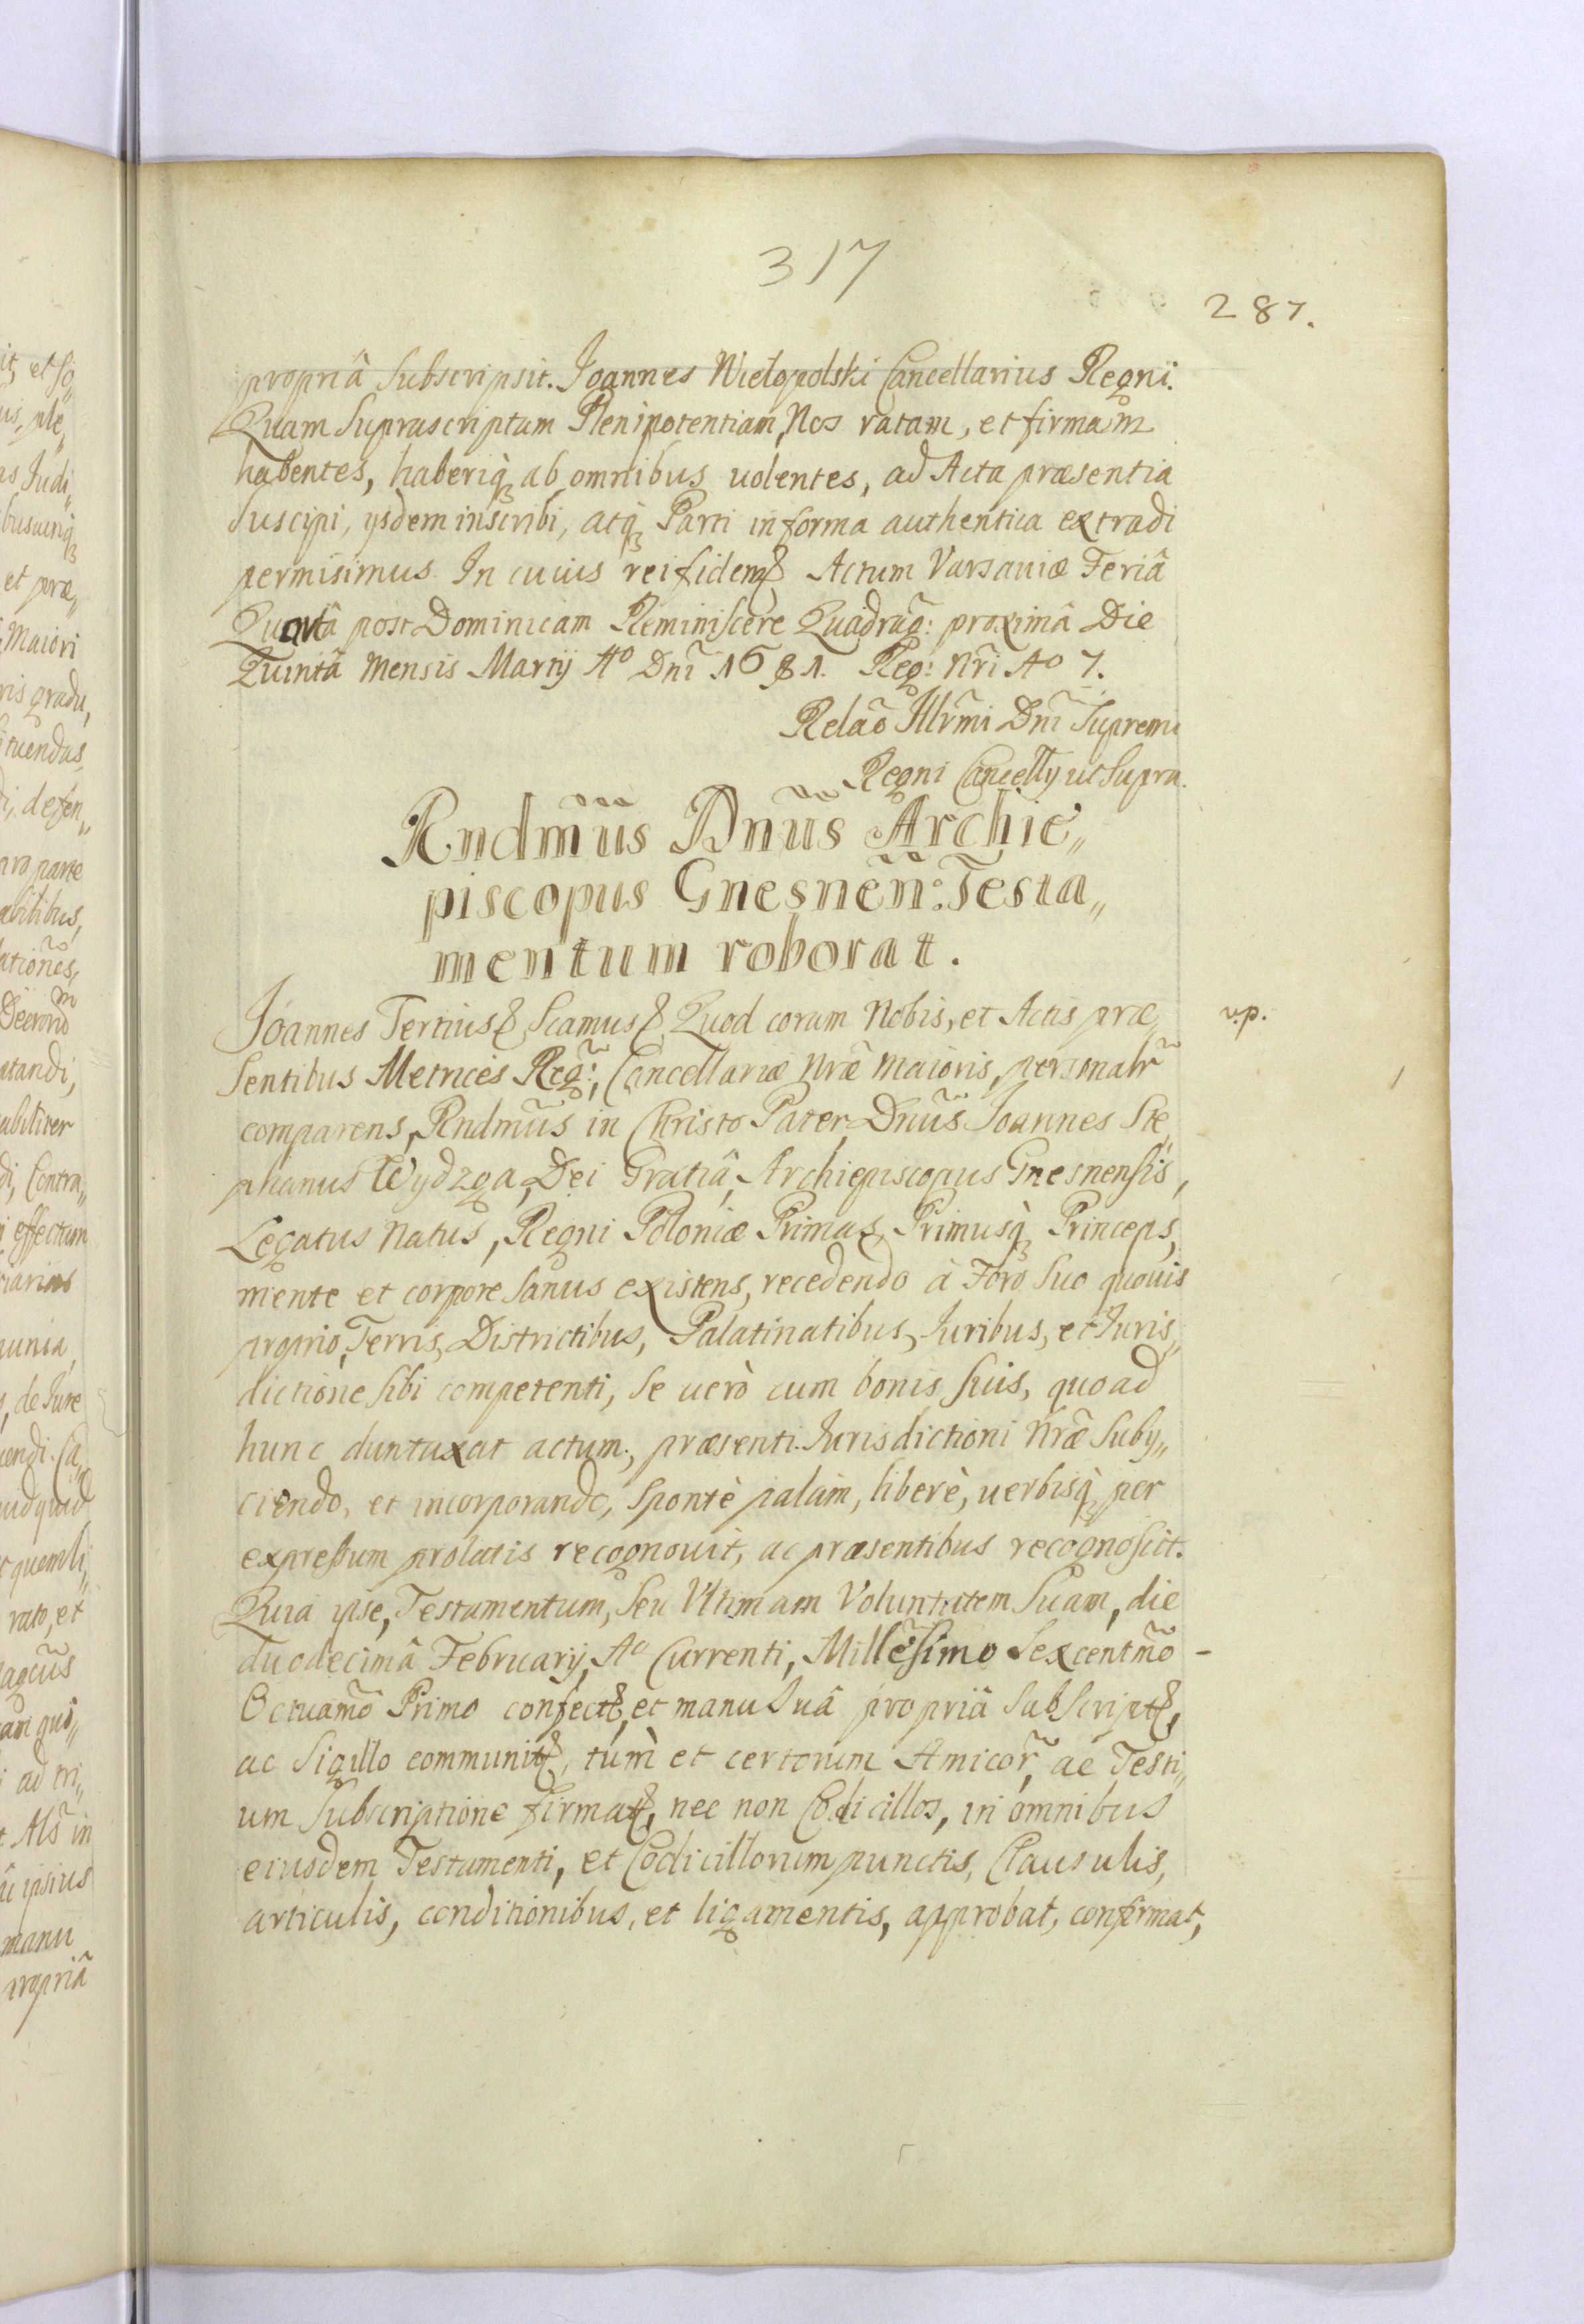 317
287.
propriâ Subscripsit. Joannes Wielopolski Cancellarius Regni.
Quam Suprascriptam Plenipotentiam, Nos ratam, et firmam
habentes, haberiq̀ ab omnibus uolentes, ad Acta præsentia
Suscipi, ijsdem inscribi, atq̀ Parti in forma authentica extradi
permisimus. In cuius rei fidem Actum Varsauiæ Feriâ
Quartâ post Dominicam Reminiscere Quadrag̃: proximâ Die
Quintâ Mensis Martij Aº Dnĩ 1681. Reg: Nrĩ Aº 7.
Relaõ Illrm̃i Dnĩ Supremi
Regni Cancellj ut Supra.
Rndm̃us Dnũs Archie„
piscopus Gnesnẽn: Testa„
mentum roborat.
Joannes Tertius Scamus Quod coram Nobis, et Actis præ„
sentibus Metrices Reg̃:, Cancellariæ Nræ̃ Maioris, personalr̃
comparens, Rndm̃us in Christo Pater Dnũs Joannes Ste„
phanus Wydzga, Dei Gratiâ, Archiepiscopus Gnesnensis,
Legatus Natus, Regni Poloniæ Primas, Primusq̀ Princeps,
mente et corpore Sanus existens, recedendo à Foro Suo quouis
proprio, Terris, Districtibus, Palatinatibus, Iuribus, et Iuris„
dictione sibi competenti, Se uerò cum bonis suis, quoad
hunc duntaxat actum, præsenti Iurisdictioni Nræ̃ Subij„
ciendo, et incorporando, Spontè palàm, liberè, uerbisq̀ per
expressum prolatis recognouit, ac præsentibus recognoscit.
Quia ipse, Testamentum, Seu Vltimam Voluntatem Suam, die
duodecimâ February, Aº Currenti, Millesimo Sexcentm̃o -
Octuam̃o Primo confect, et manu Suâ propriâ Subscript,
ac Sigillo communit, tùm et certorum Amicor̃, ac Testi„
um Subscriptione firmat, nec non Codicillos, in omnibus
eiusdem Testamenti, et Codicillorum punctis, Clausulis,
articulis, conditionibus, et ligamentis, approbat, confirmat,